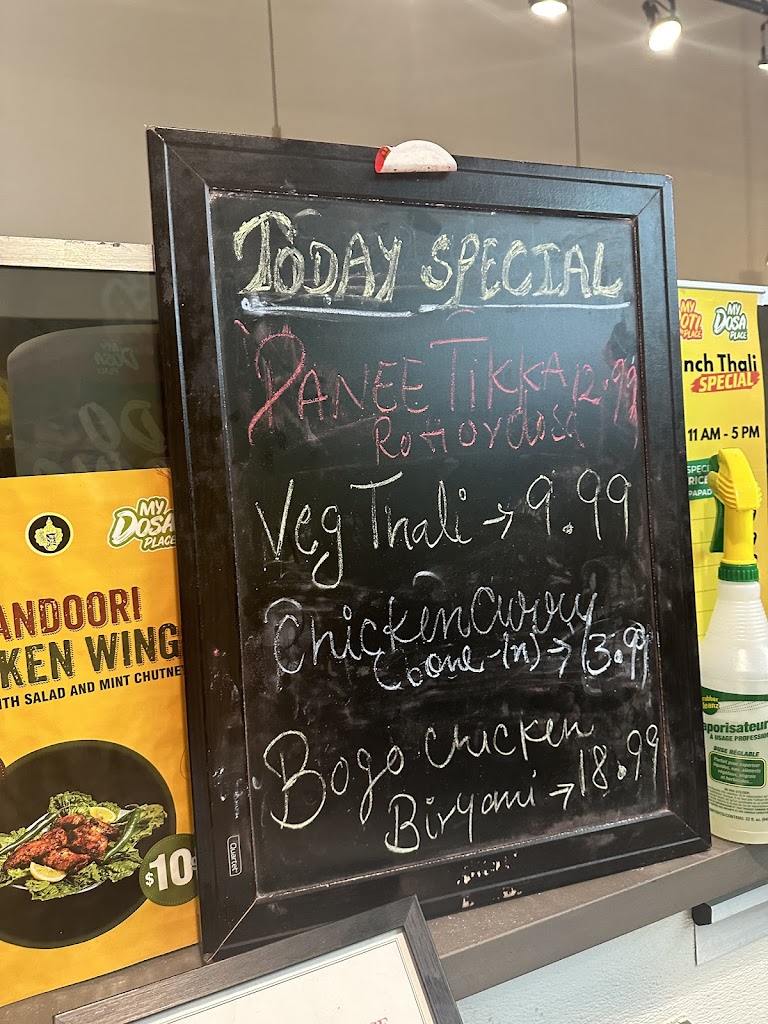 TODAY SPECIAL
PANEE TIKKA 12.99
Veg Thali → 9.99
Chicken Curry
(Bone-in) → 13.99
Bogo Chicken
Biryani → 18.99
Quartet
MY
DOSA
PLACE
ANDOORI
KEN WING
ITH SALAD AND MINT CHUTNE
$10
MY
OTI
PLACE
MY
DOSA
PLACE
nch Thali
SPECIAL
11 AM - 5 PM
SPEC
RICE
PAPAD
porisateur
À USAGE PROFESSION
BUSE RÉGLABLE